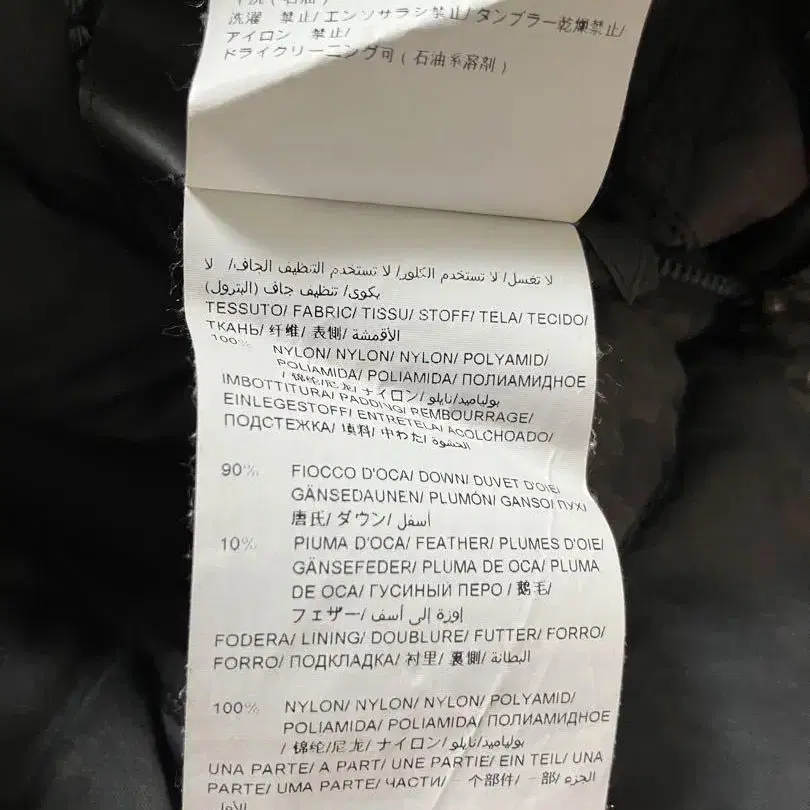 洗濯 禁止/ エンソサラシ禁止/ タンブラー乾燥禁止/
アイロン 禁止/
ドライクリーニング可 ( 石油系溶剤 )
لا تغسل/ لا تستخدم الكلور/ لا تستخدم التنظيف الجاف/ لا
يكوى/ تنظيف جاف (البترول)
TESSUTO/ FABRIC/ TISSU/ STOFF/ TELA/ TECIDO/
ТКАНЬ/ 纤维/ 表側/ الأقمشة/
100% NYLON/ NYLON/ NYLON/ POLYAMID/
POLIAMIDA/ POLIAMIDA/ ПОЛИАМИДНОЕ
/ 锦纶/尼龙/ ナイロン/ بولياميد/نايلو
IMBOTTITURA/ PADDING/ REMBOURRAGE/
EINLEGESTOFF/ ENTRETELA/ ACOLCHOADO/
ПОДСТЕЖКА/ 填料/ 中わた/ الحشوة/
90% FIOCCO D'OCA/ DOWN/ DUVET D'OIE/
GÄNSEDAUNEN/ PLUMÓN/ GANSO/ ПУХ/
唐氏/ ダウン/ أسفل/
10% PIUMA D'OCA/ FEATHER/ PLUMES D'OIE/
GÄNSEFEDER/ PLUMA DE OCA/ PLUMA
DE OCA/ ГУСИНЫЙ ПЕРО / 鹅毛/
フェザー/ اوزة إلى أسف/
FODERA/ LINING/ DOUBLURE/ FUTTER/ FORRO/
FORRO/ ПОДКЛАДКА/ 衬里/ 裏側/ البطانة/
100% NYLON/ NYLON/ NYLON/ POLYAMID/
POLIAMIDA/ POLIAMIDA/ ПОЛИАМИДНОЕ
/ 锦纶/尼龙/ ナイロン/ بولياميد/نايلو
UNA PARTE/ A PART/ UNE PARTIE/ EIN TEIL/ UNA
PARTE/ UMA PARTE/ ЧАСТИ/ 一个部件/ 一部/ الجزء/